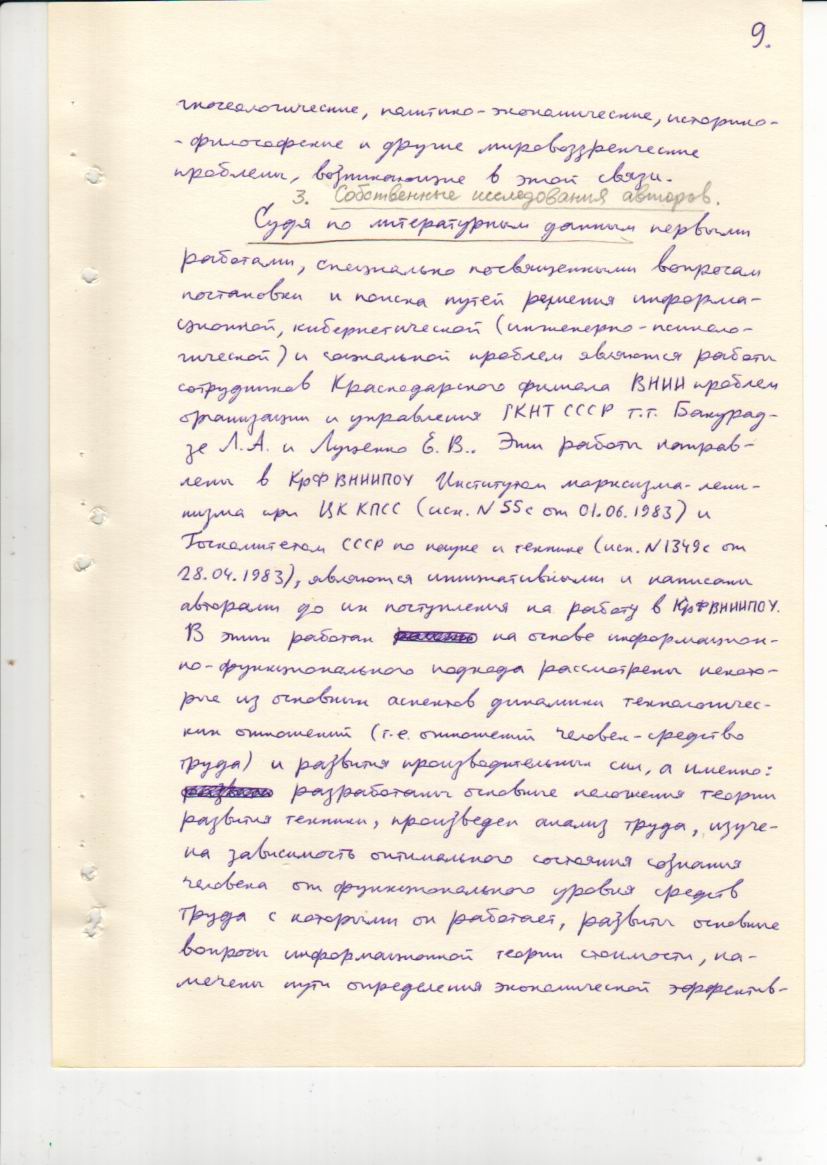 9.
гносеологические, политико-экономические, историко-
-философские и другие мировоззренческие
проблемы, возникающие в этой связи.
3. Собственные исследования авторов.
Судя по литературным данным первыми
работами, специально посвященными вопросам
постановки и поиска путей решения информа-
ционной, кибернетической (инженерно-психоло-
гической) и социальной проблем являются работы
сотрудников Краснодарского филиала ВНИИ проблем
организации и управления ГКНТ СССР т.т. Бакурад-
зе Л.А. и Луценко Е.В.. Эти работы направ-
лены в КрФ ВНИИПОУ Институтом марксизма-лени-
низма при ЦК КПСС (исх. N 55с от 01.06.1983) и
Госкомитетом СССР по науке и технике (исх. N 1349с от
28.04.1983), являются инициативными и написаны
авторами до их поступления на работу в КрФ ВНИИПОУ.
В этих работах на основе информацион-
но-функционального подхода рассмотрены некото-
рые из основных аспектов динамики технологичес-
ких отношений (т.е. отношений человек-средство
труда) и развития производительных сил, а именно:
разработаны основные положения теории
развития техники, произведен анализ труда, изуче-
на зависимость оптимального состояния сознания
человека от функционального уровня средств
труда с которыми он работает, развиты основные
вопросы информационной теории стоимости, на-
мечены пути определения экономической эффектив-